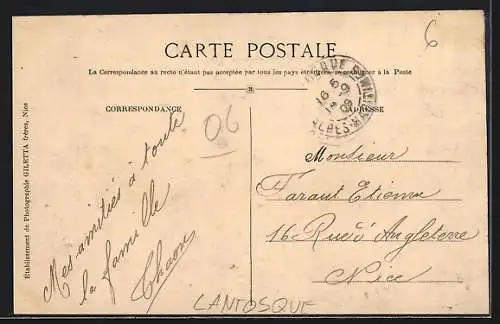 CARTE POSTALE
La Correspondance au recto n'étant pas acceptée par tous les pays étrangers, se renseigner à la Poste
CORRESPONDANCE
ADRESSE
Etablissement de Photographie GILETTA frères, Nice
6
06
Mes amitiés à toute
la famille
Thaon
Monsieur
Faraut Etienne
16 Rue d'Angleterre
Nice
LANTOSQUE